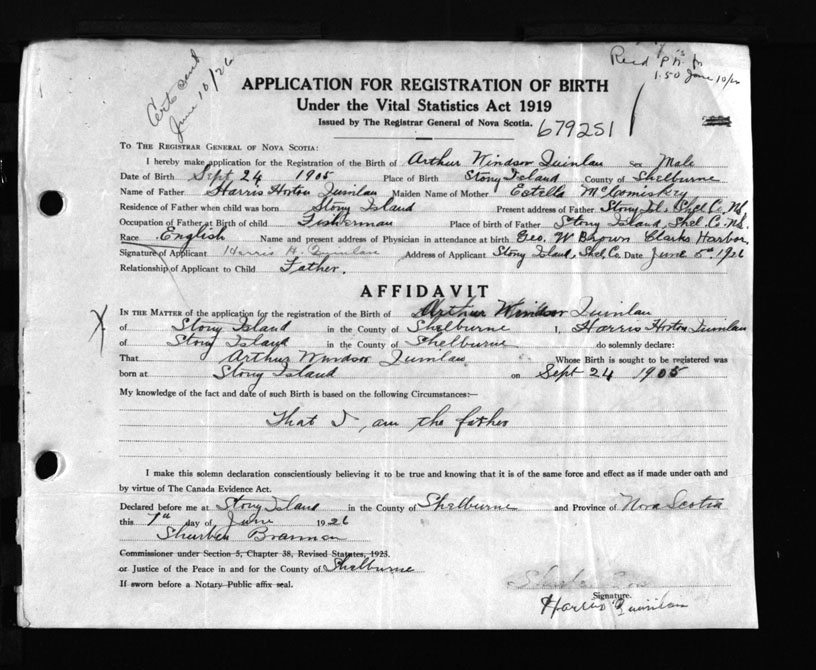 Certs sent
June 10/26
Recd
1.50 June 10/26
APPLICATION FOR REGISTRATION OF BIRTH
Under the Vital Statistics Act 1919
Issued by The Registrar General of Nova Scotia.
679251
TO THE REGISTRAR GENERAL OF NOVA SCOTIA:
I hereby make application for the Registration of the Birth of Arthur Windsor Quinlan Sex Male
Date of Birth Sept 24 1905 Place of Birth Stony Island County of Shelburne
Name of Father Harris Horton Quinlan Maiden Name of Mother Estella McComiskey
Residence of Father when child was born Stony Island Present address of Father Stony Isl, Shel. C. NS
Occupation of Father at Birth of child Fisherman Place of birth of Father Stony Island, Shel. Co. N.S.
Race English Name and present address of Physician in attendance at birth Geo. W Brown Clarks Harbor
Signature of Applicant Harris H. Quinlan Address of Applicant Stony Island, Shel, Co. Date June 5th 1926
Relationship of Applicant to Child Father.
AFFIDAVIT
IN THE MATTER of the application for the registration of the Birth of Arthur Windsor Quinlan
X of Stony Island in the County of Shelburne I, Harris Horton Quinlan
of Stony Island in the County of Shelburne do solemnly declare:
That Arthur Windsor Quinlan Whose Birth is sought to be registered was
born at Stony Island on Sept 24 1905
My knowledge of the fact and date of such Birth is based on the following Circumstances:—
That I am the father
I make this solemn declaration conscientiously believing it to be true and knowing that it is of the same force and effect as if made under oath and
by virtue of The Canada Evidence Act.
Declared before me at Stony Island in the County of Shelburne and Province of Nova Scotia
this 7th day of June 1926
Brannen
Commissioner under Section 5, Chapter 38, Revised Statutes, 1923.
or Justice of the Peace in and for the County of Shelburne
If sworn before a Notary Public affix seal.
Signature.
Harris Quinlan